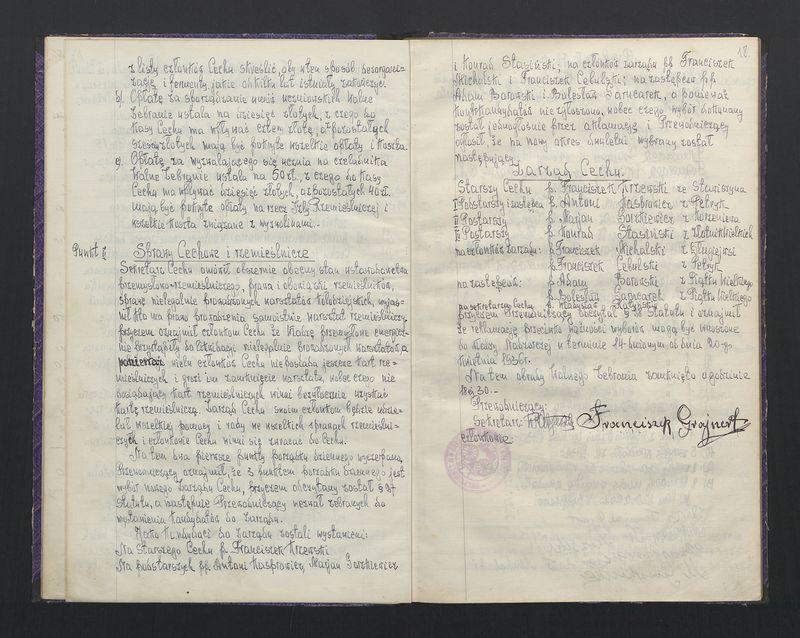 z listy członków Cechu skreślić, aby w ten sposób dezorgani-
zację i fermenty, jakie od kilku lat istniały zakończyć.
b) Opłatę za sporządzanie umów uczniowskich Walne
Zebranie ustala na dziesięć złotych, z czego do
Kasy Cechu ma wpłynąć cztery złote, a z pozostałych
sześciu złotych mają być pokryte wszelkie opłaty i koszta.
c) Opłatę za wyzwalającego się ucznia na czeladnika
Walne Zebranie ustala na 50 zł., z czego do Kasy
Cechu ma wpłynąć dziesięć złotych, a z pozostałych 40 zł.
mają być pokryte opłaty na rzecz Izby Rzemieślniczej i
wszelkie koszta związane z wyzwolinami.
Punkt Sprawy Cechowe i rzemieślnicze
Sekretarz Cechu omówił obszernie obecny stan ustawodawstwa
przemysłowo-rzemieślniczego, prawa i obowiązki rzemieślników,
sprawę nielegalnie prowadzonych warsztatów kołodziejskich, wyjaś-
nił kto ma prawo prowadzenia samoistnie warsztat rzemieślniczy,
przyczem oznajmił członkom Cechu że Władze przemysłowe energicz-
nie przystąpiły do likwidacji nielegalnie prowadzonych warsztatów, a
ponieważ wielu członków Cechu nie posiada jeszcze kart rze-
mieślniczych i grozi im zamknięcie warsztatu, wobec czego nie
posiadający kart rzemieślniczych winni bezzwłocznie uzyskać
kartę rzemieślniczą. Zarząd Cechu swoim członkom będzie udzie-
lał wszelkiej pomocy i rady we wszelkich sprawach rzemieślni-
czych i członkowie Cechu winni się zwracać do Cechu.
Na tem dwa pierwsze punkty porządku dziennego wyczerpano.
Przewodniczący oznajmił, że 3 punktem porządku dziennego jest
wybór nowego Zarządu Cechu, przyczem odczytany został § 27
Statutu, a następnie Przewodniczący wezwał zebranych do
wystawienia kandydatów do Zarządu.
Jako kandydaci do Zarządu zostali wystawieni:
Na Starszego Cechu p. Franciszek Krzewski
Na podstarszych pp. Antoni Kasprowicz, Marjan Borzkiewicz
18.
i Konrad Stasiński; na członków zarządu pp. Franciszek
Michalski i Franciszek Cebulski; na zastępców pp.
Adam Borowski i Bolesław Garncarek, a ponieważ
kontrkandydatów nie zgłoszono, wobec czego wybór dokonany
został jednogłośnie przez aklamację i Przewodniczący
ogłosił, że na nowy okres dwuletni wybrany został
następujący
Zarząd Cechu.
Starszy Cechu p. Franciszek Krzewski ze Staniszyna
I Podstarszy i zastępca p. Antoni Kasprowicz z Petryk
II Postarszy p. Marjan Borzkiewicz z Korzeniewa
III Postarszy p. Konrad Stasiński z Wielkich
na członków zarządu: p. Franciszek Michalski z
p. Franciszek Cebulski z Petryk
na zastępców: p. Adam Borowski z Piątku Wielkiego
p. Bolesław Garncarek z Piątku Wielkiego
na sekretarza Cechu p. Władysław
przyczem Przewodniczący odczytał § 38 Statutu i oznajmił
że reklamacje przeciwko ważności wyborów mogą być wnoszone
do Władzy Nadzorczej w terminie 14-dniowym od dnia 20-go
kwietnia 1936 r.
Na tem obrady Walnego Zebrania zamknięto o godzinie
30 -
Przewodniczący:
Sekretarz: Franciszek Grajnert
Członkowie: